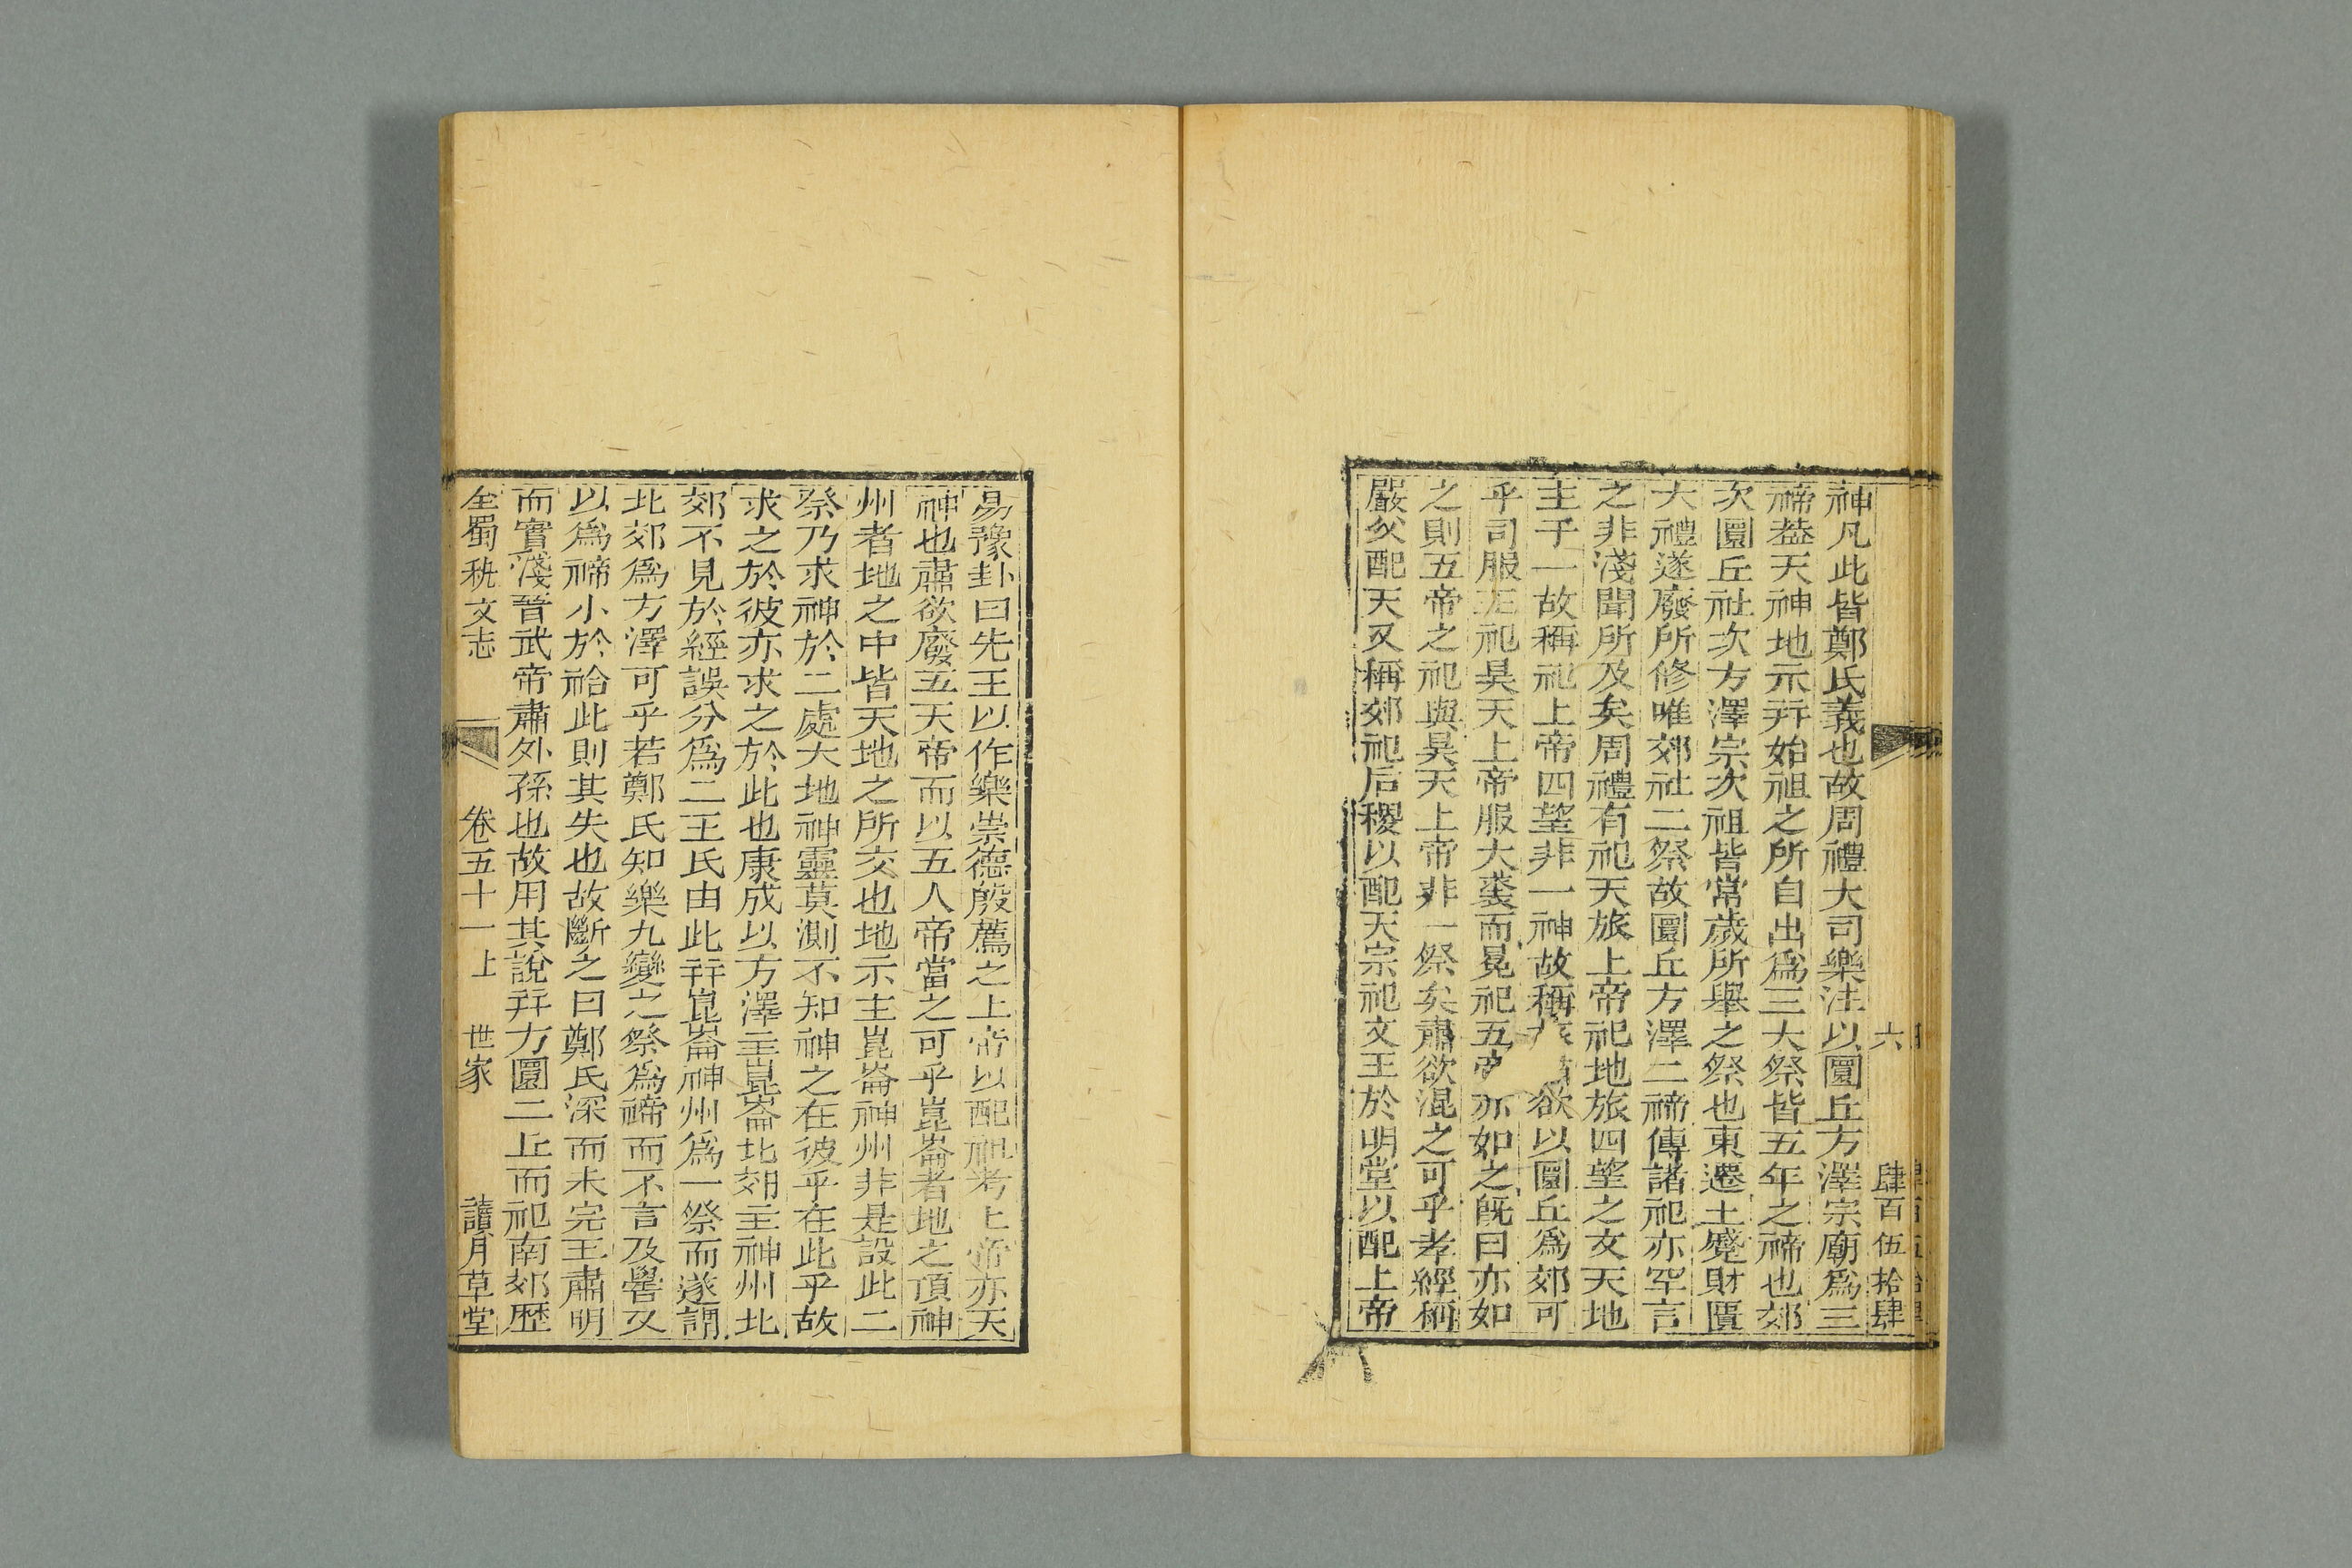 六 肆百伍拾肆
神凡此皆鄭氏義也故周禮大司樂注以圜丘方澤宗廟爲三
禘葢天神地示幷始祖之所自出爲三大祭皆五年之禘也郊
次圜丘社次方澤宗次祖皆常歲所舉之祭也東遷土蹙財匱
大禮遂廢所修唯郊社二祭故圜丘方澤二禘傳諸祀亦罕言
之非淺聞所及矣周禮有祀天旅上帝祀地旅四望之文天地
主于一故稱祀上帝四望非一神故稱 欲以圜丘爲郊可
乎司服王祀昊天上帝服大裘而冕祀五 亦如之旣曰亦如
之則五帝之祀與昊天上帝非一祭矣肅欲混之可乎孝經稱
嚴父配天又稱郊祀后稷以配天宗祀文王於明堂以配上帝
易豫卦曰先王以作樂崇德殷薦之上帝以配祖考上帝亦天
神也肅欲廢五天帝而以五人帝當之可乎崑崙者地之頂神
州者地之中皆天地之所交也地示主崑崙神州非是設此二
祭乃求神於二處大地神靈莫測不知神之在彼乎在此乎故
求之於彼亦求之於此也康成以方澤主崑崙北郊主神州北
郊不見於經誤分爲二王氏由此幷崑崙神州爲一祭而遂謂
北郊爲方澤可乎若鄭氏知樂九變之祭爲禘而不言及嚳又
以爲禘小於祫此則其失也故斷之曰鄭氏深而未完王肅明
而實淺晉武帝肅外孫也故用其說幷方圜二丘而祀南郊歷
全蜀秇文志 卷五十一上 世家 讀月草堂